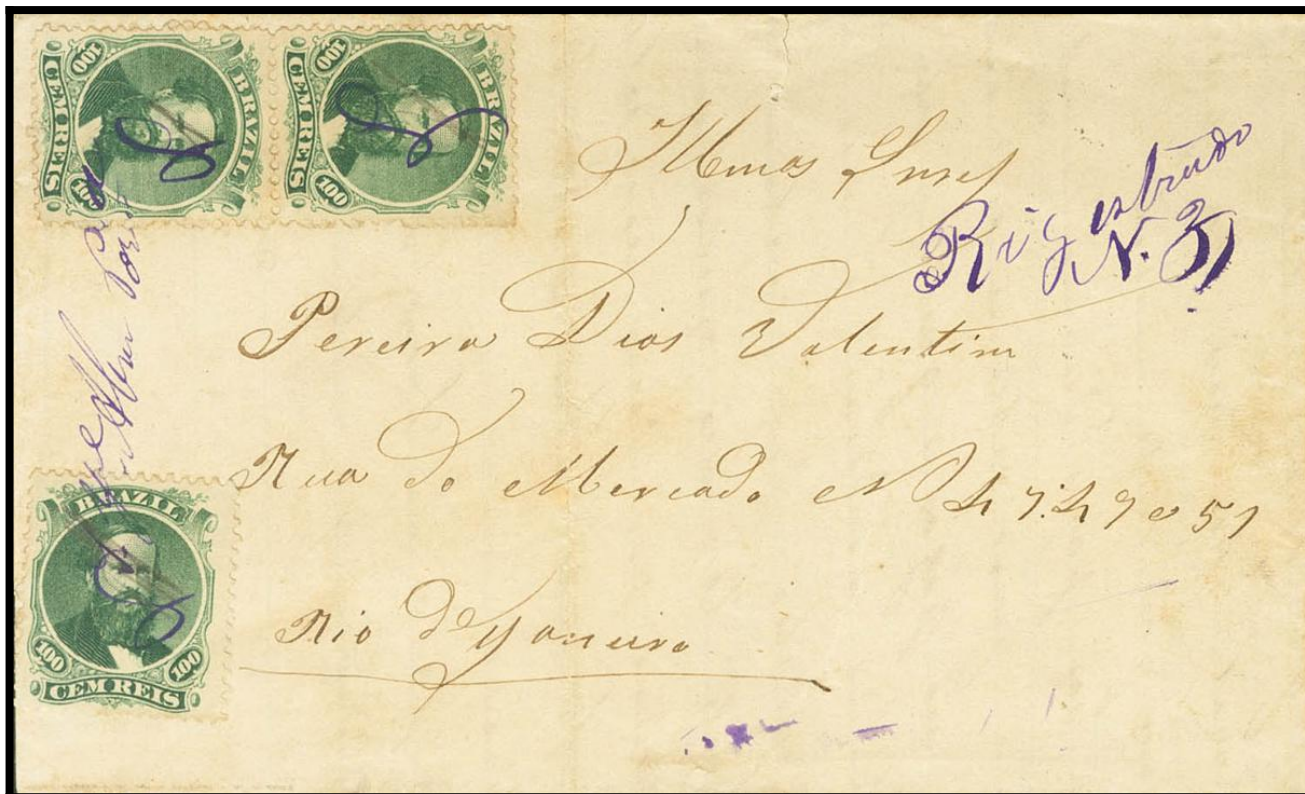 BRAZIL
100 100
CEM REIS
BRAZIL
100 100
CEM REIS
Illmos Snres
Rigestrado
N. 31
Pereira Dias Valentim
Rua do Mercado N 47.49 e 51
Rio de Janeiro
BRAZIL
100 100
CEM REIS